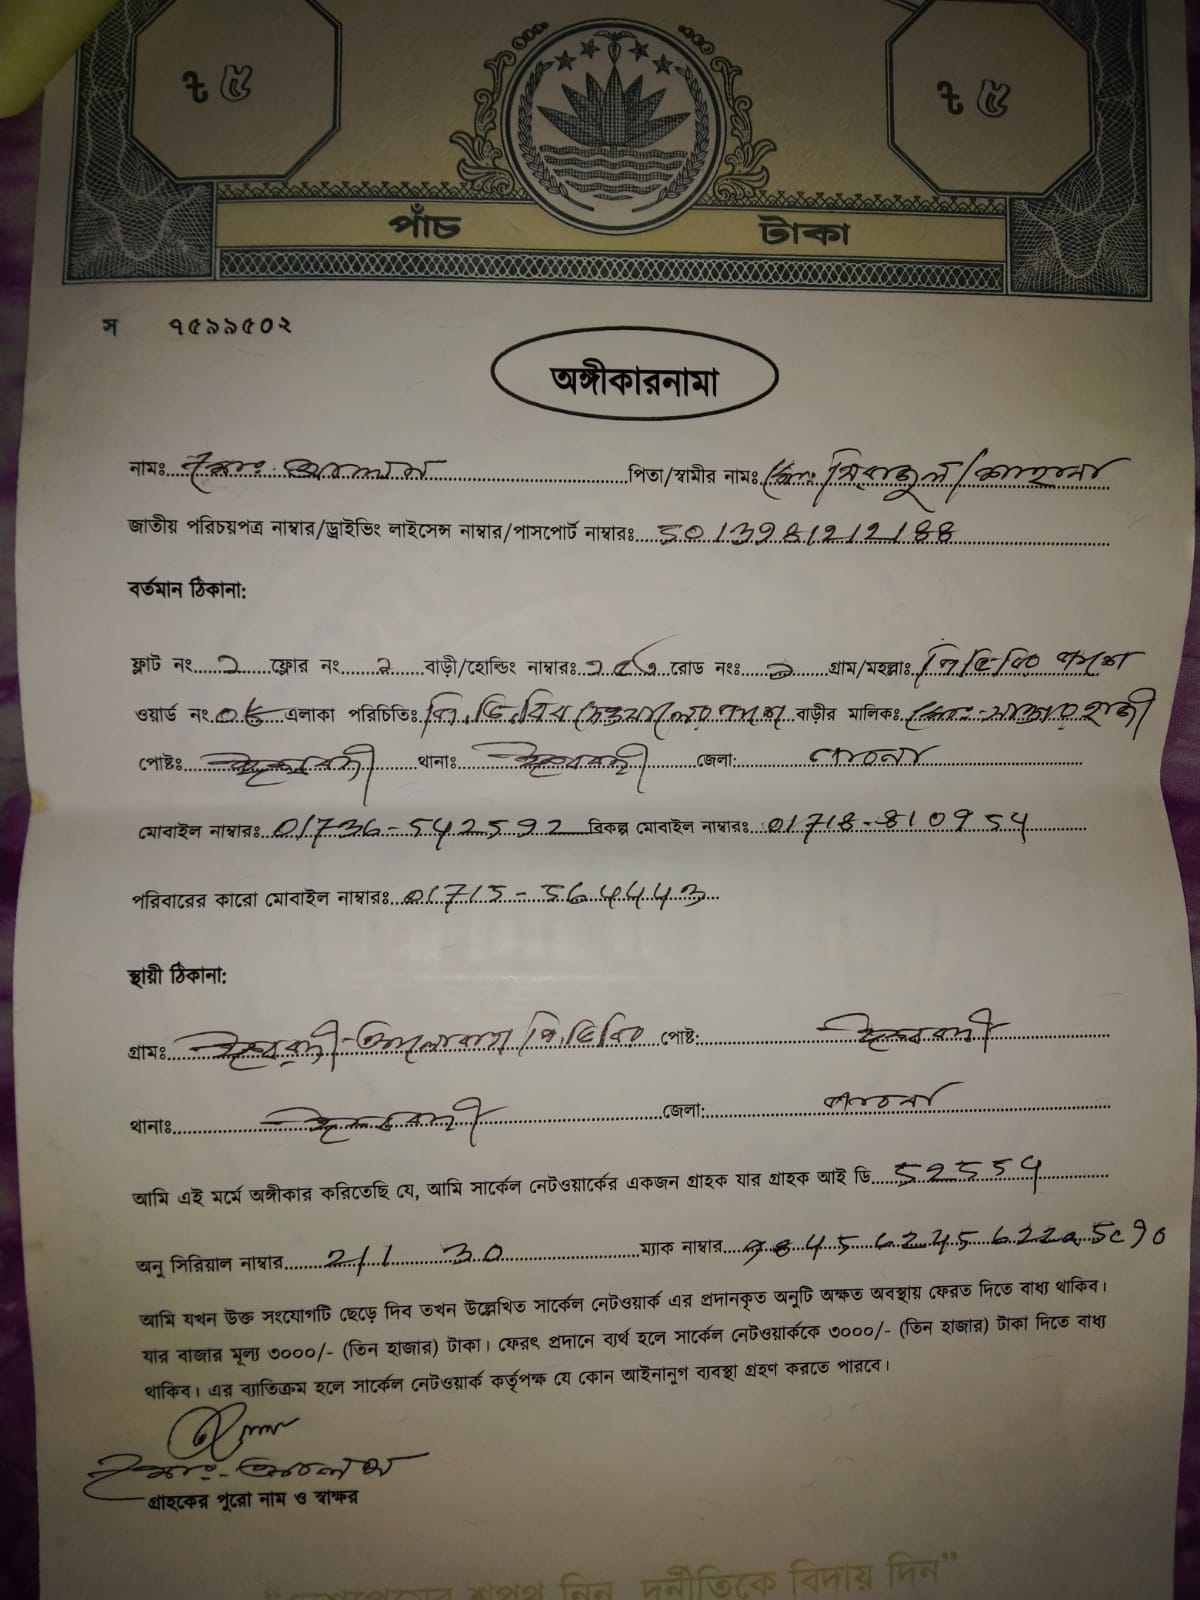 ৳ ৫ ৳ ৫
পাঁচ টাকা
স ৭৫৯৯৫০২
অঙ্গীকারনামা
নামঃ মোঃ আলম পিতা/স্বামীর নামঃ মোঃ সিরাজুল/শাহানা
জাতীয় পরিচয়পত্র নাম্বার/ড্রাইভিং লাইসেন্স নাম্বার/পাসপোর্ট নাম্বারঃ
বর্তমান ঠিকানা:
ফ্লাট নং ২ ফ্লোর নং ২ বাড়ী/হোল্ডিং নাম্বারঃ রোড নংঃ গ্রাম/মহল্লাঃ
ওয়ার্ড নং ০৫ এলাকা পরিচিতিঃ বাড়ীর মালিকঃ
পোষ্টঃ ঈশ্বরদী থানাঃ ঈশ্বরদী জেলা: পাবনা
মোবাইল নাম্বারঃ 01736-542592 বিকল্প মোবাইল নাম্বারঃ
পরিবারের কারো মোবাইল নাম্বারঃ 01715-564443
স্থায়ী ঠিকানা:
গ্রামঃ ঈশ্বরদী পোষ্ট: ঈশ্বরদী
থানাঃ ঈশ্বরদী জেলা: পাবনা
আমি এই মর্মে অঙ্গীকার করিতেছি যে, আমি সার্কেল নেটওয়ার্কের একজন গ্রাহক যার গ্রাহক আই ডি
অনু সিরিয়াল নাম্বার 211 30 ম্যাক নাম্বার
আমি যখন উক্ত সংযোগটি ছেড়ে দিব তখন উল্লেখিত সার্কেল নেটওয়ার্ক এর প্রদানকৃত অনুটি অক্ষত অবস্থায় ফেরত দিতে বাধ্য থাকিব।
যার বাজার মূল্য ৩০০০/- (তিন হাজার) টাকা। ফেরৎ প্রদানে ব্যর্থ হলে সার্কেল নেটওয়ার্ককে ৩০০০/- (তিন হাজার) টাকা দিতে বাধ্য
থাকিব। এর ব্যাতিক্রম হলে সার্কেল নেটওয়ার্ক কর্তৃপক্ষ যে কোন আইনানুগ ব্যবস্থা গ্রহণ করতে পারবে।
মোঃ আলম
গ্রাহকের পুরো নাম ও স্বাক্ষর
শপথ নিন, দুর্নীতিকে বিদায় দিন"